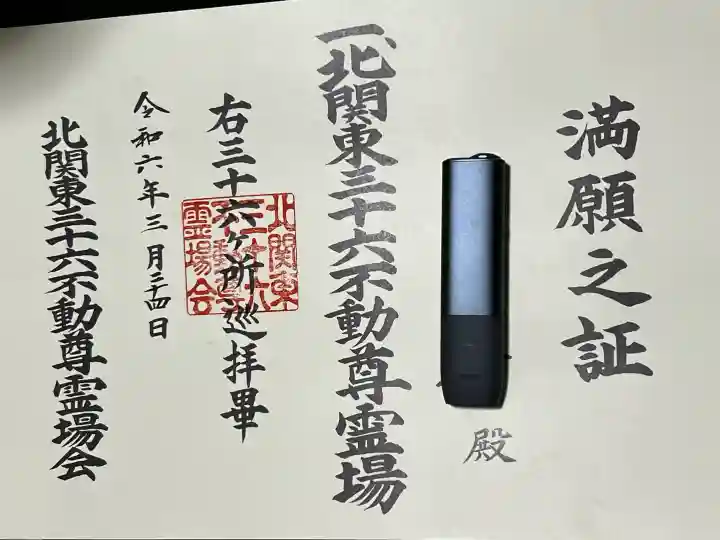 満願之証
殿
一、北関東三十六不動尊霊場
右三十六ヶ所巡拝畢
令和六年三月二十四日
北関東三十六不動尊霊場会
北関東
三十六
不動尊
霊場会